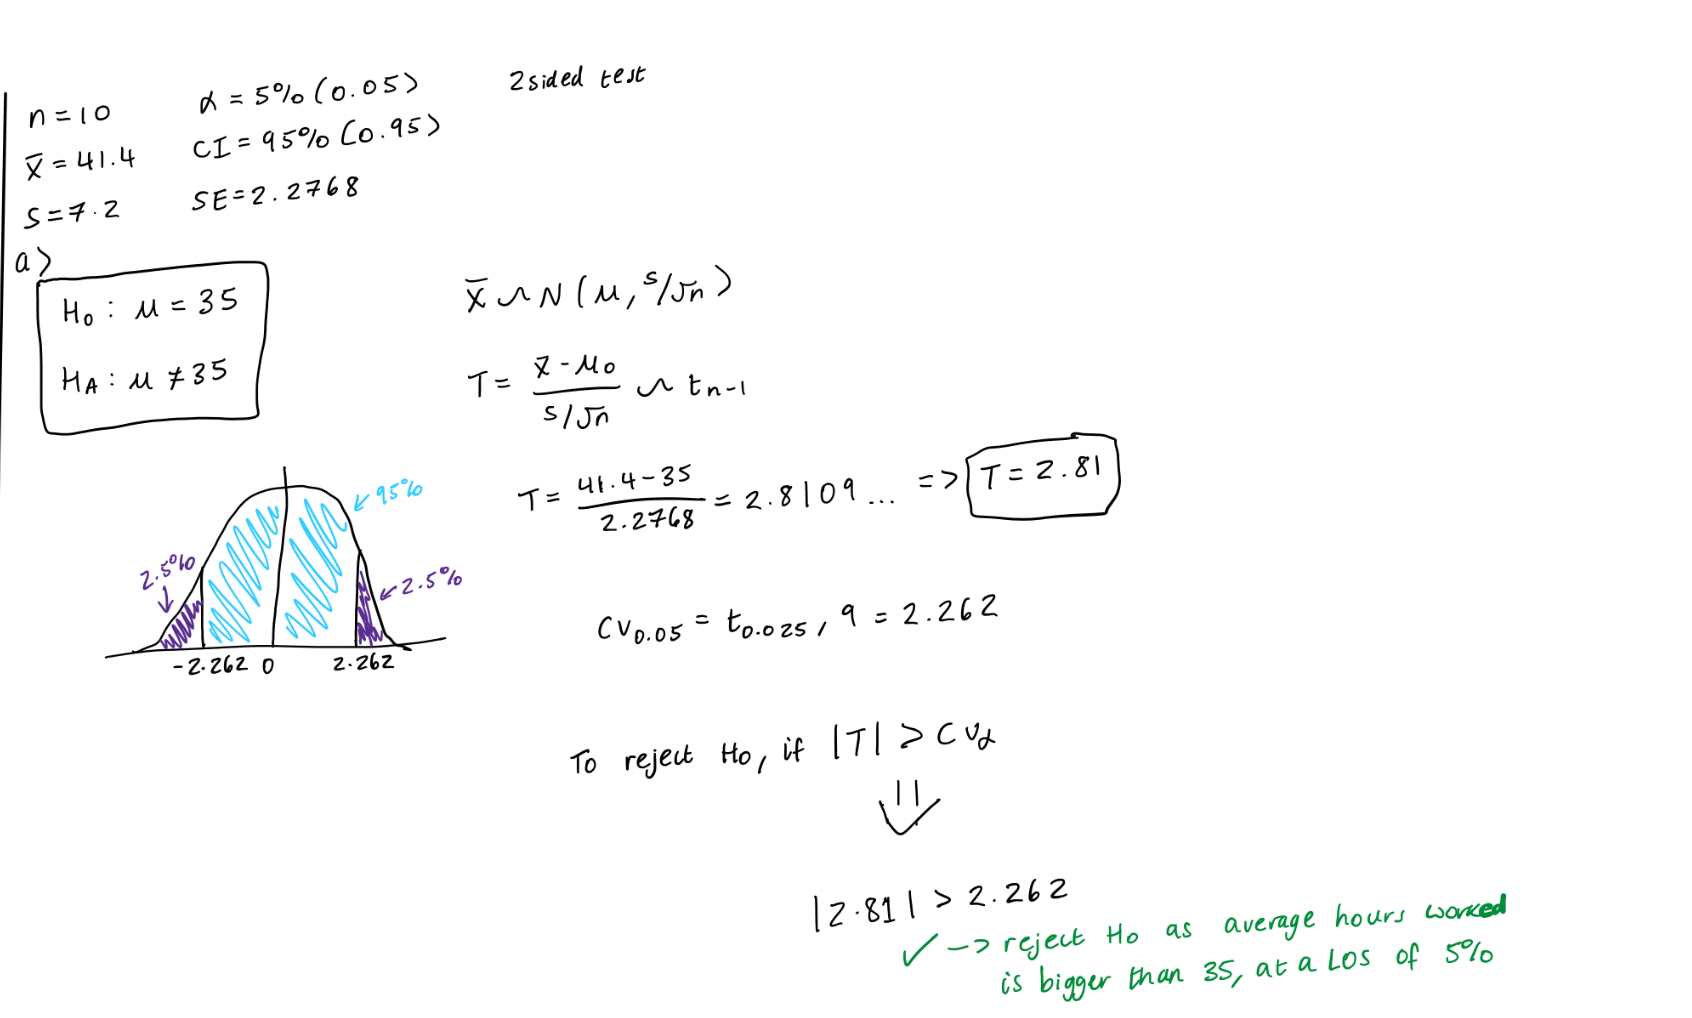 n = 10
x̄ = 41.4
s = 7.2
α = 5% (0.05)
CI = 95% (0.95)
SE = 2.2768
2sided test
a)
H₀ : μ = 35
H_A : μ ≠ 35
x̄ ~ N(μ, s/√n)
T = (x̄ - μ₀)/(s/√n) ~ t_{n-1}
T = (41.4 - 35)/2.2768 = 2.8109... => T = 2.81
95%
2.5%
2.5%
-2.262 0 2.262
CV_{0.05} = t_{0.025}, 9 = 2.262
To reject H₀, if |T| > CV_α
⇓
|2.81| > 2.262
✓ -> reject H₀ as average hours worked
is bigger than 35, at a LOS of 5%